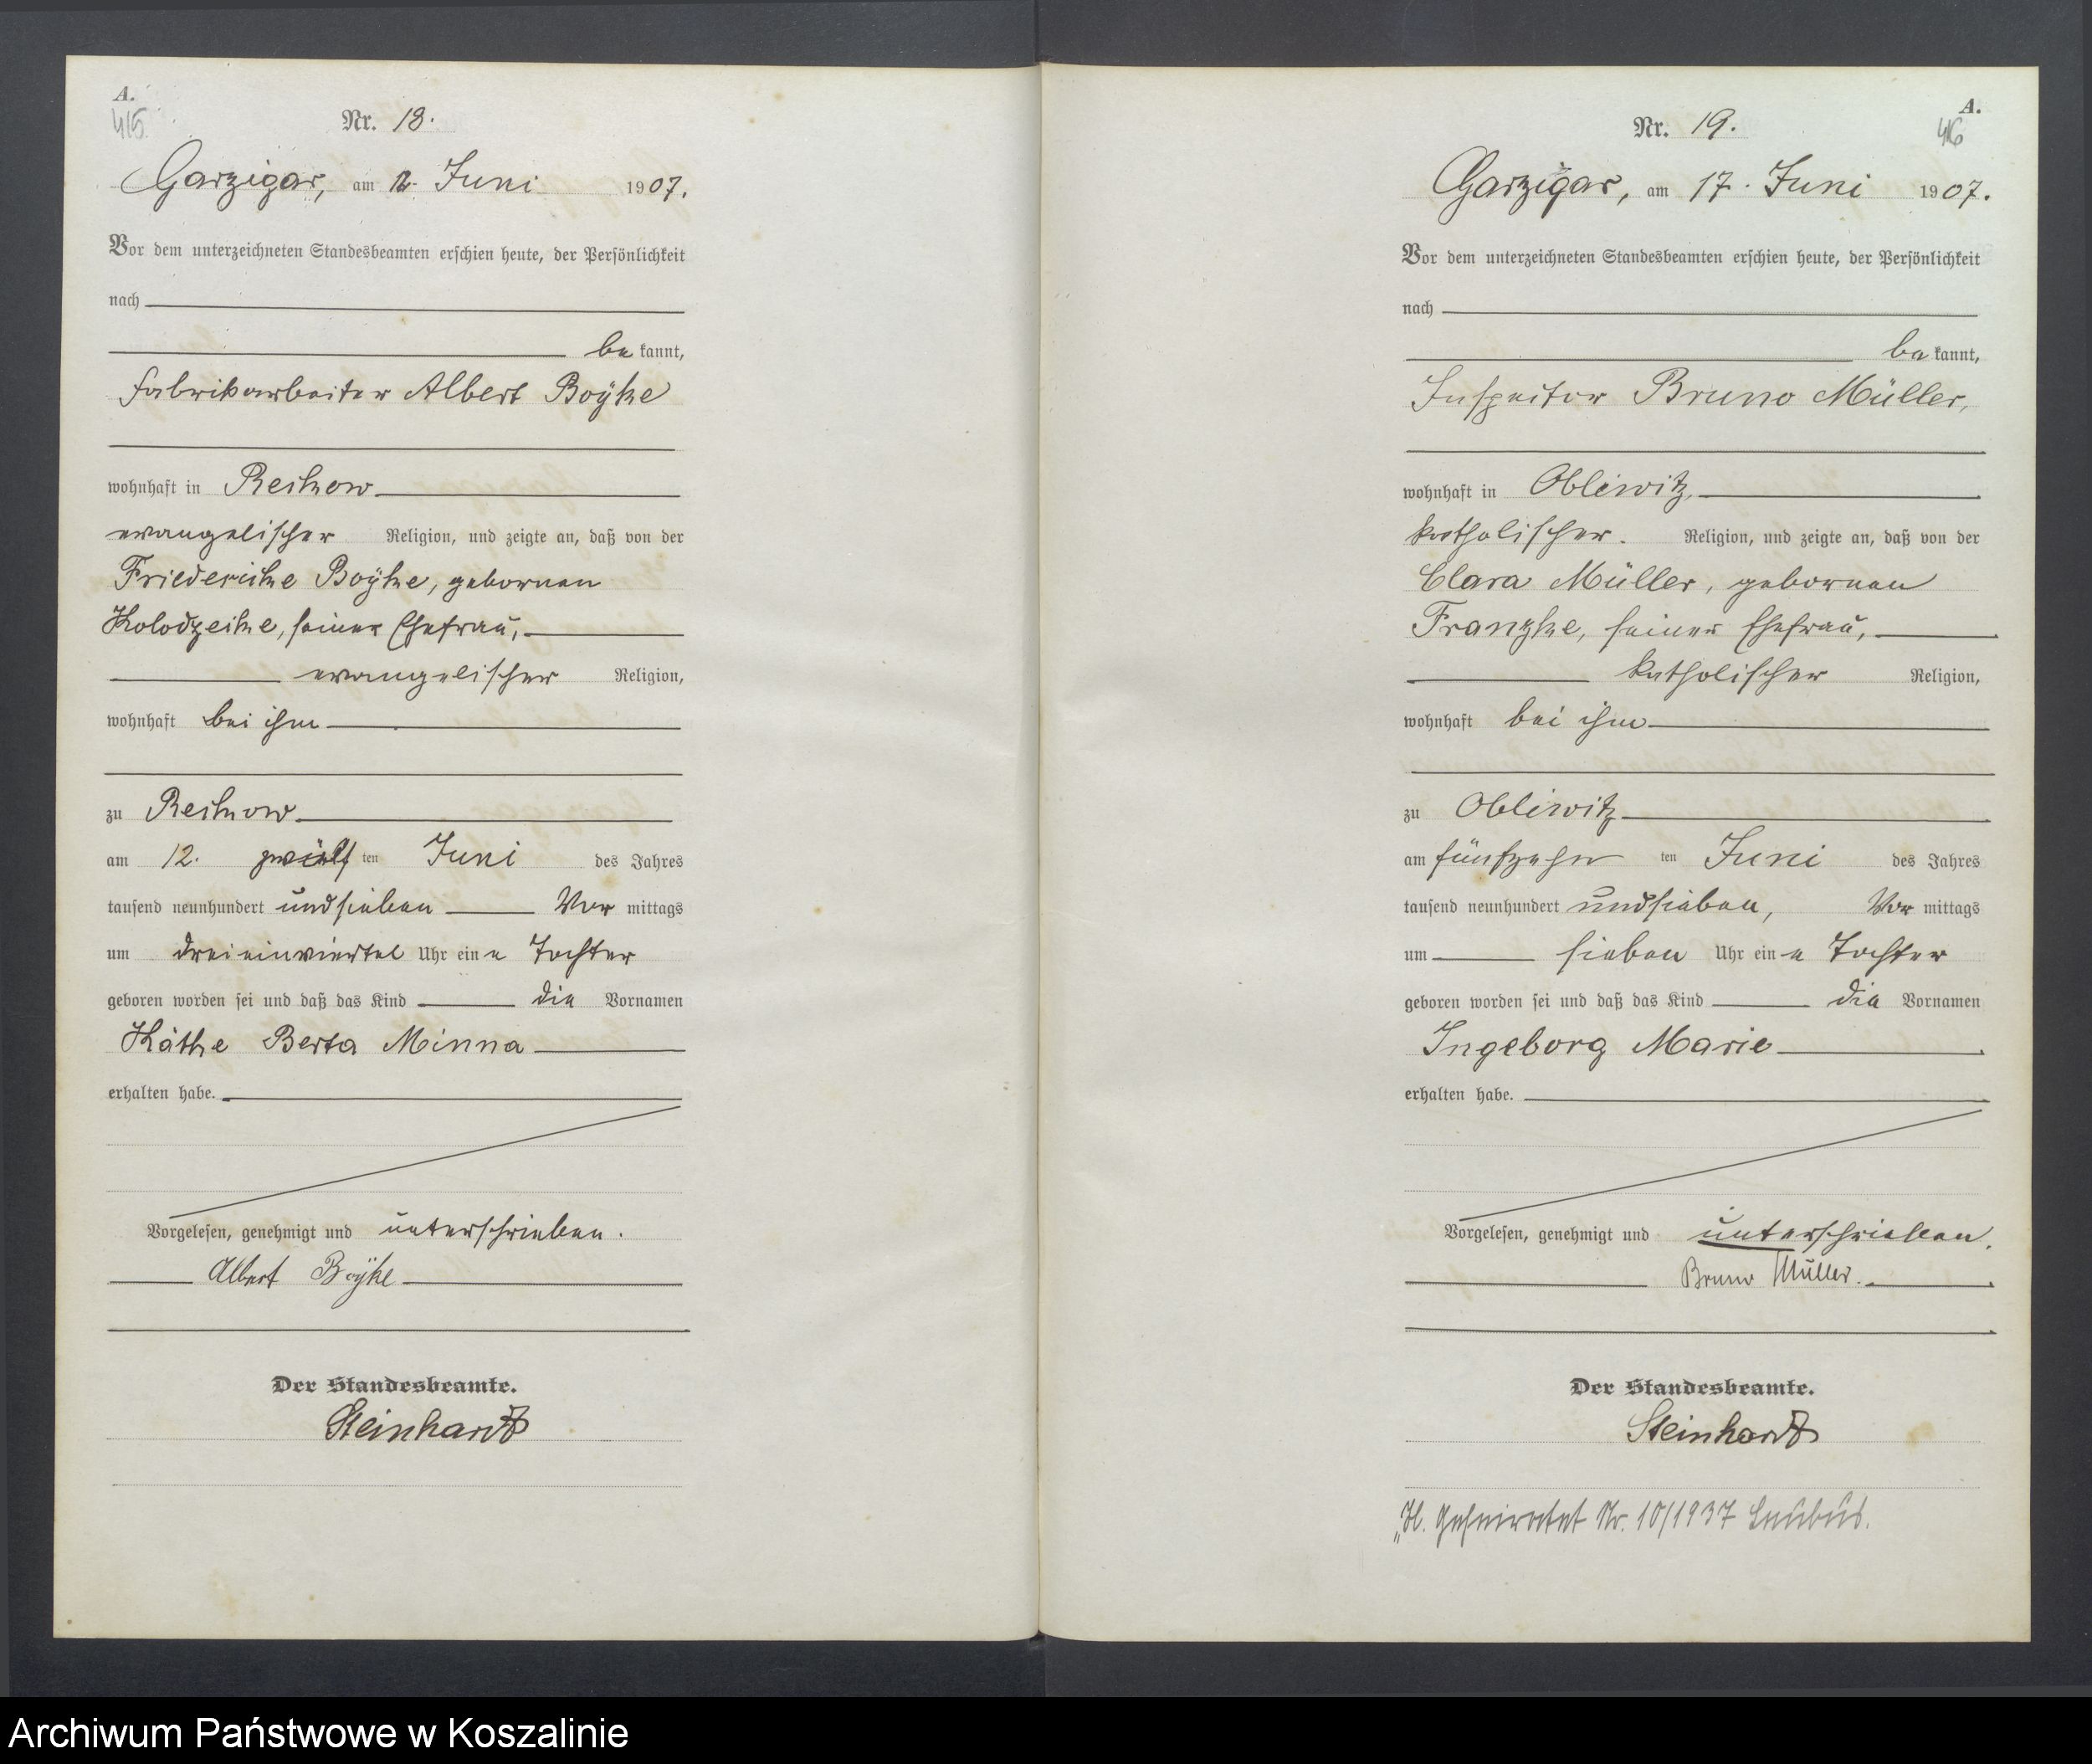 A.
415
Nr. 18.
Garzigar, am 12. Juni 1907.
Vor dem unterzeichneten Standesbeamten erschien heute, der Persönlichkeit
nach
be kannt,
Fabrikarbeiter Albert Boÿke
wohnhaft in Reskow
evangelischer Religion, und zeigte an, daß von der
Friederike Boÿke, gebornen
Kolodzeike, seiner Ehefrau,
evangelischer Religion,
wohnhaft bei ihm
zu Reskow
am 12. zwölf ten Juni des Jahres
tausend neunhundert und sieben Vor mittags
um drei einviertel Uhr ein e Tochter
geboren worden sei und daß das Kind die Vornamen
Käthe Berta Minna
erhalten habe.
Vorgelesen, genehmigt und unterschrieben.
Albert Boÿke
Der Standesbeamte.
Steinhardt
A.
416
Nr. 19.
Garzigar, am 17. Juni 1907.
Vor dem unterzeichneten Standesbeamten erschien heute, der Persönlichkeit
nach
be kannt,
Inspektor Bruno Müller,
wohnhaft in Obliwitz,
katholischer. Religion, und zeigte an, daß von der
Clara Müller, gebornen
Franzke, seiner Ehefrau,
katholischer Religion,
wohnhaft bei ihm
zu Obliwitz
am fünfzehn ten Juni des Jahres
tausend neunhundert und sieben, Vor mittags
um sieben Uhr ein e Tochter
geboren worden sei und daß das Kind die Vornamen
Ingeborg Marie
erhalten habe.
Vorgelesen, genehmigt und unterschrieben.
Bruno Müller.
Der Standesbeamte.
Steinhardt
geheiratet Nr. 10/1937
Archiwum Państwowe w Koszalinie